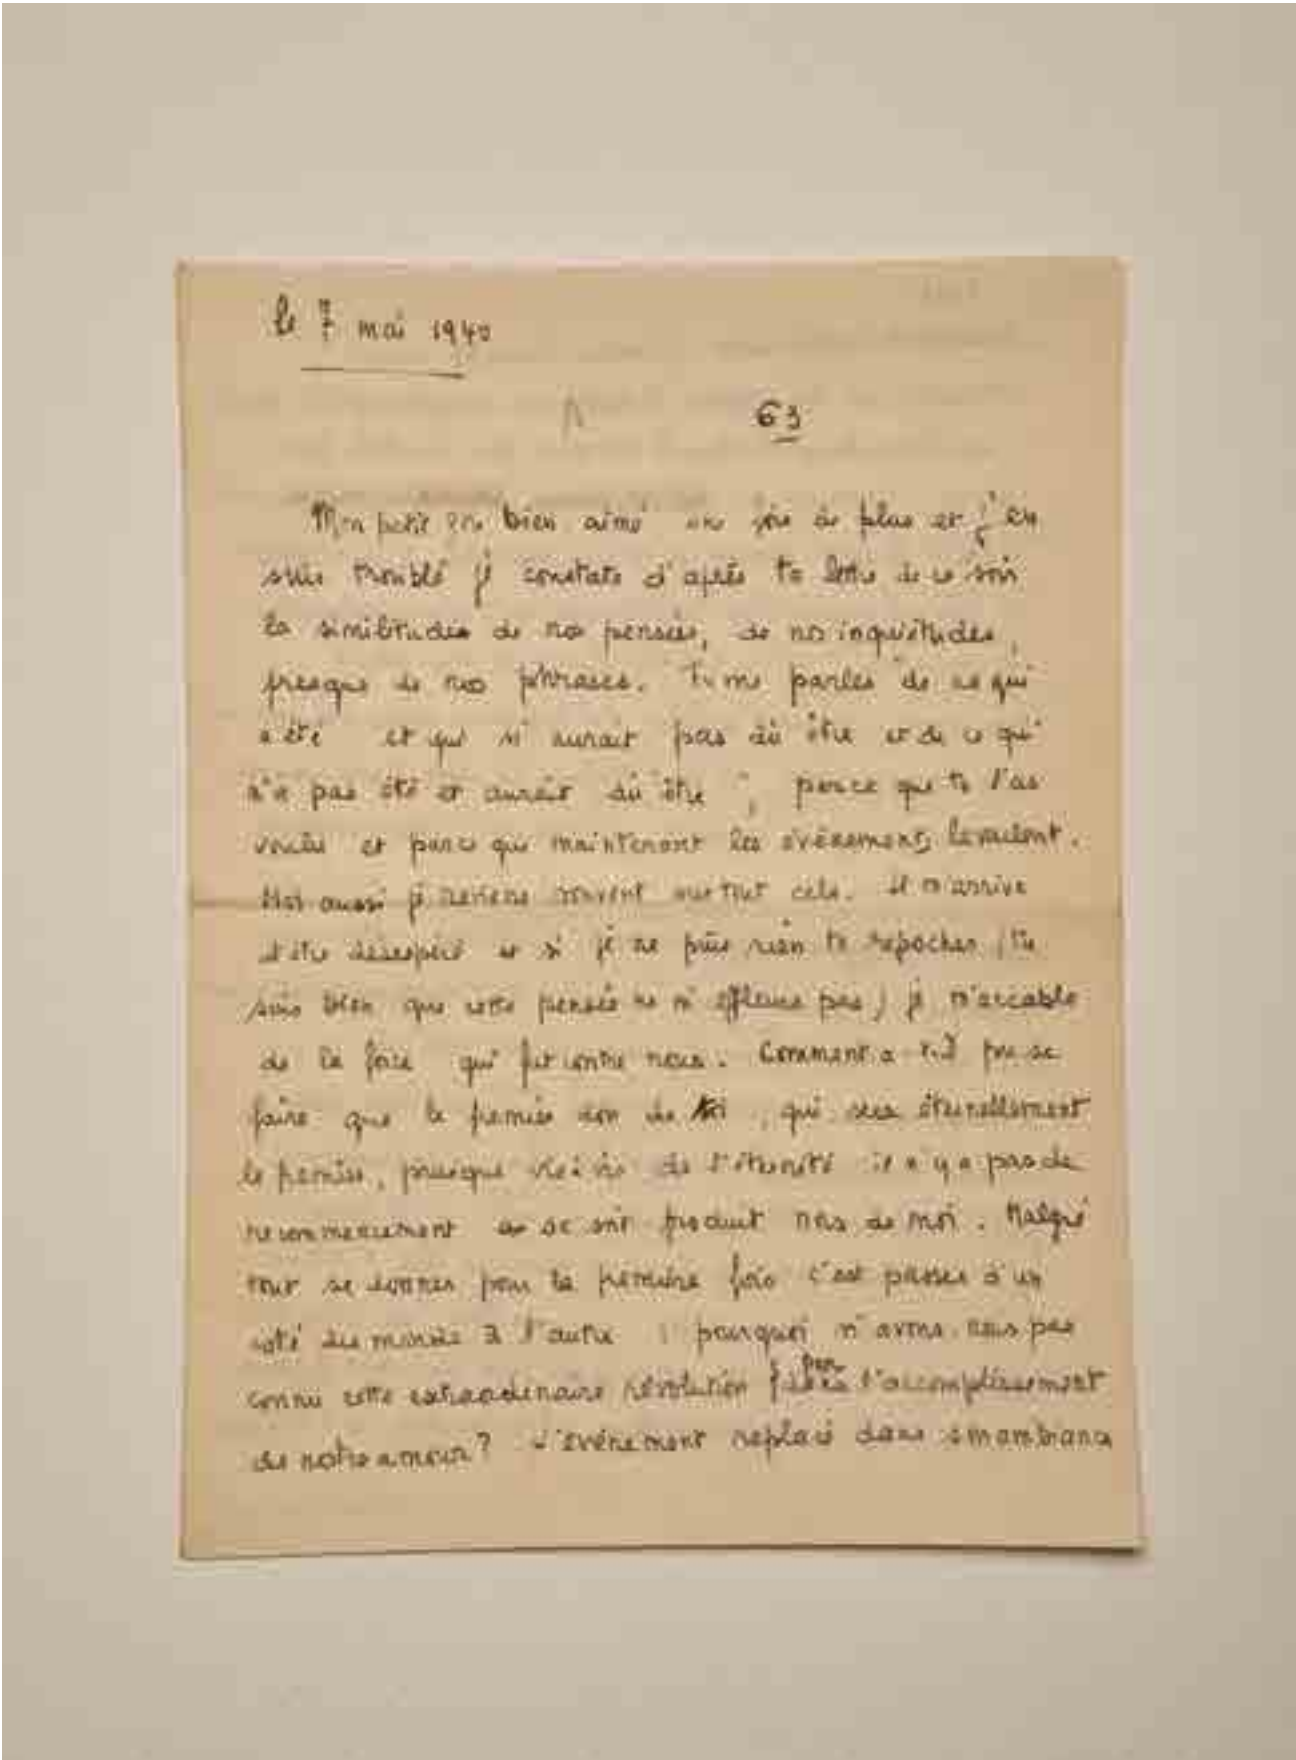 le 7 mai 1940
63
Mon petit bien aimé une fois de plus et j'en
suis troublé je constate d'après ta lettre de ce soir
la similitudes de nos pensées, de nos inquiétudes,
presque de nos phrases. Tu me parles "de ce qui
a été et qui n'aurait pas dû être et de ce qui
n'a pas été et aurait dû être", parce que tu l'as
voulu et parce que maintenant les événements le veulent.
Moi aussi je reviens souvent sur tout cela. Il m'arrive
d'être désespéré et si je ne puis rien te repocher (tu
sais bien que cette pensée ne m'effleure pas) je m'accable
de la force qui fut contre nous. Comment a-t-il pu se
faire que le premier don de toi, qui sera éternellement
le premier, puisque vis à vis de l'éternité il n'y a pas de
recommencement se soit produit hors de moi. Malgré
tout se donner pour la première fois c'est passer d'un
coté du monde à l'autre : pourquoi n'avons nous pas
connu cette extraordinaire révolution par l'accomplissement
de notre amour? L'événement replacé dans